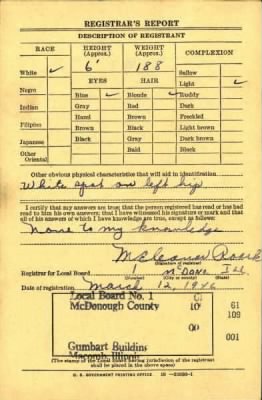 REGISTRAR'S REPORT
DESCRIPTION OF REGISTRANT
RACE HEIGHT (Approx.) WEIGHT (Approx.) COMPLEXION
White ✓ 6' 188 Sallow
EYES HAIR Light ✓
Negro Blue ✓ Blonde ✓ Ruddy
Indian Gray Red Dark
Hazel Brown Freckled
Filipino Brown Black Light brown
Japanese Black Gray Dark brown
Other Oriental Bald Black
Other obvious physical characteristics that will aid in identification
White spot on left hip
I certify that my answers are true; that the person registered has read or has had
read to him his own answers; that I have witnessed his signature or mark and that
all of his answers of which I have knowledge are true, except as follows:
None to my knowledge
Eleanor Roark
(Signature of registrar)
Registrar for Local Board 1 McDono. Ill.
(Number) (City or county) (State)
Date of registration March 12, 1946
Local Board No. 1 61
McDonough County 10 109
00 001
Gumbart Building
Macomb, Illinois
(The stamp of the Local Board having jurisdiction of the registrant
shall be placed in the above space)
U. S. GOVERNMENT PRINTING OFFICE